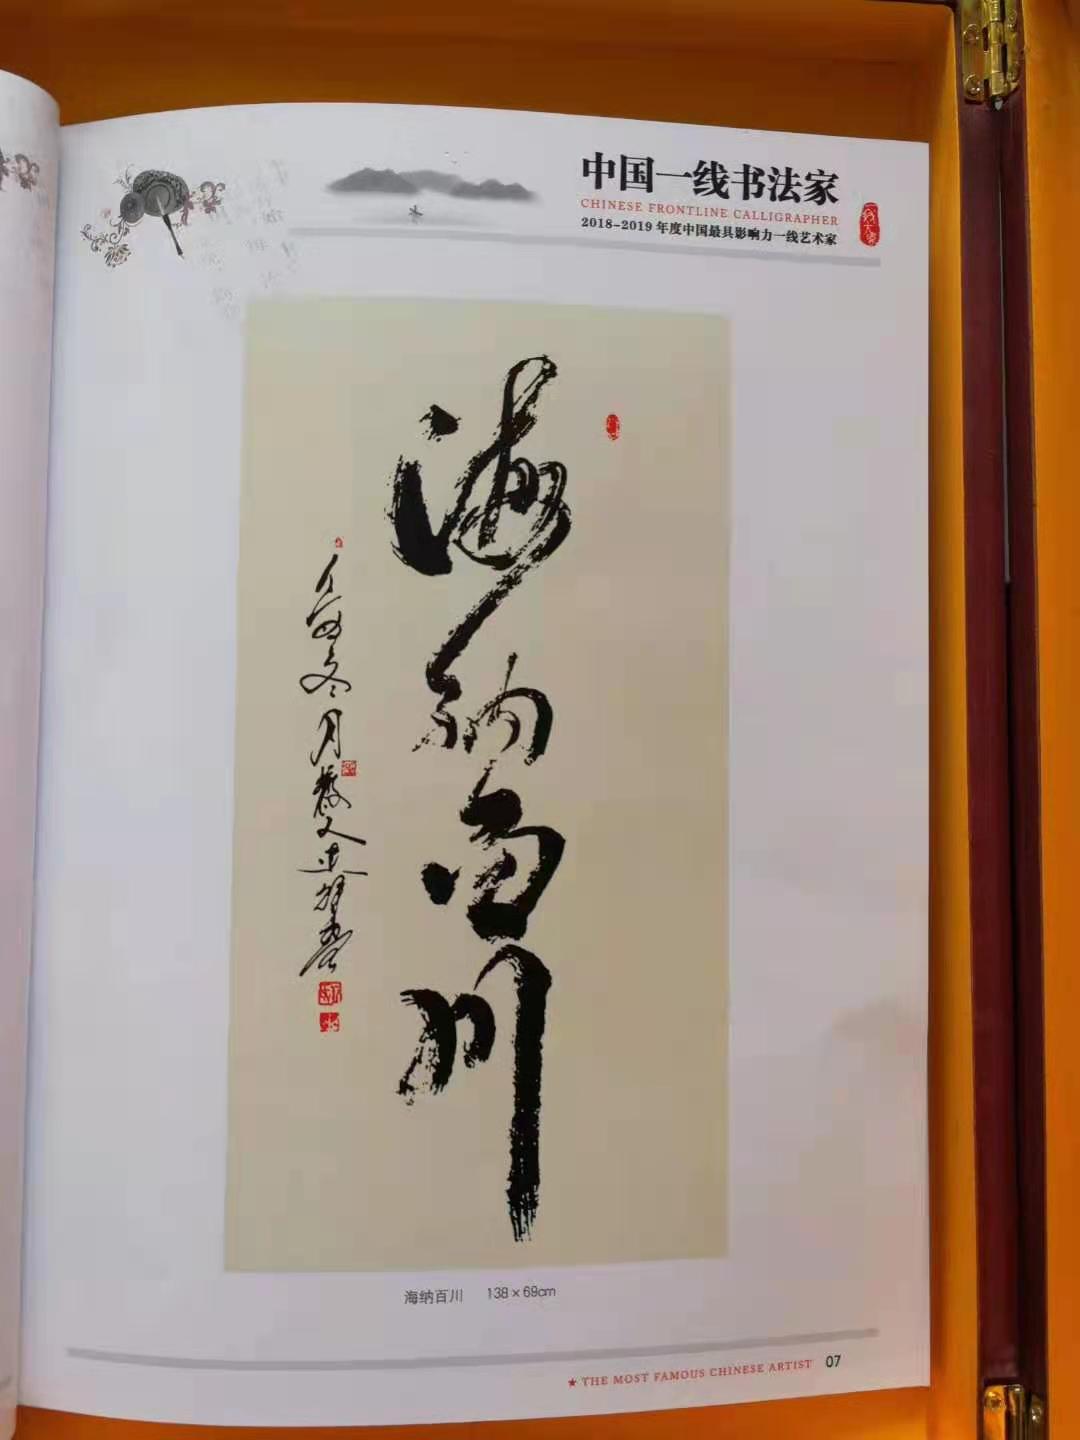 中国一线书法家
CHINESE FRONTLINE CALLIGRAPHER
2018-2019 年度中国最具影响力一线艺术家
海纳百川
冬月
海纳百川 138×69cm
★ THE MOST FAMOUS CHINESE ARTIST 07